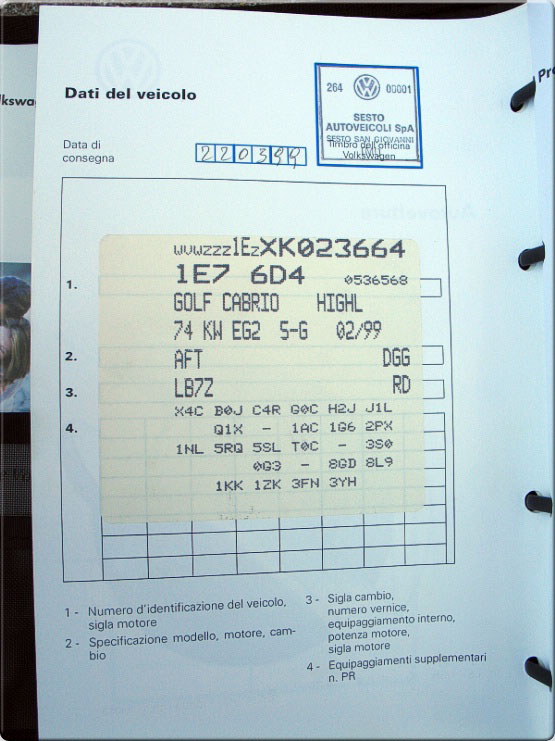 Pr
lkswa
Dati del veicolo
264 00001
SESTO
AUTOVEICOLI SpA
SESTO SAN GIOVANNI
Timbro dell'officina
Volkswagen
Data di
consegna
220399
WVWZZZ1EZXK023664
1. 1E7 6D4 0536568
GOLF CABRIO HIGHL
74 KW EG2 5-G 02/99
2. AFT DGG
3. LB7Z RD
4. X4C B0J C4R G0C H2J J1L
Q1X - 1AC 1G6 2PX
1NL 5RQ 5SL T0C - 3S0
0G3 - 8GD 8L9
1KK 1ZK 3FN 3YH
1 - Numero d'identificazione del veicolo,
sigla motore
2 - Specificazione modello, motore, cam-
bio
3 - Sigla cambio,
numero vernice,
equipaggiamento interno,
potenza motore,
sigla motore
4 - Equipaggiamenti supplementari
n. PR